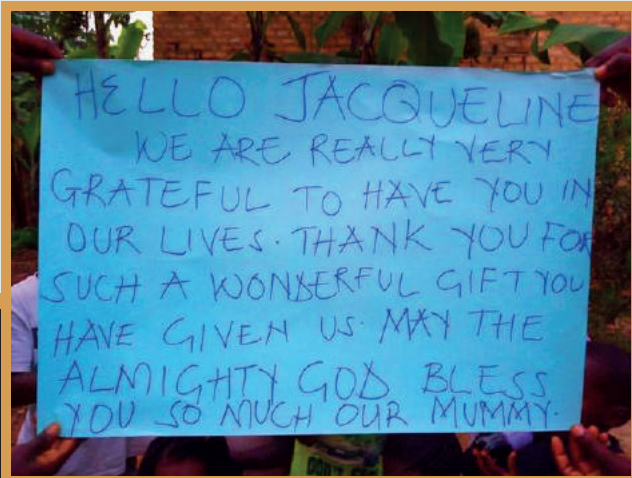 HELLO JACQUELINE
WE ARE REALLY VERY
GRATEFUL TO HAVE YOU IN
OUR LIVES. THANK YOU FOR
SUCH A WONDERFUL GIFT YOU
HAVE GIVEN US. MAY THE
ALMIGHTY GOD BLESS
YOU SO MUCH OUR MUMMY.
DON'T